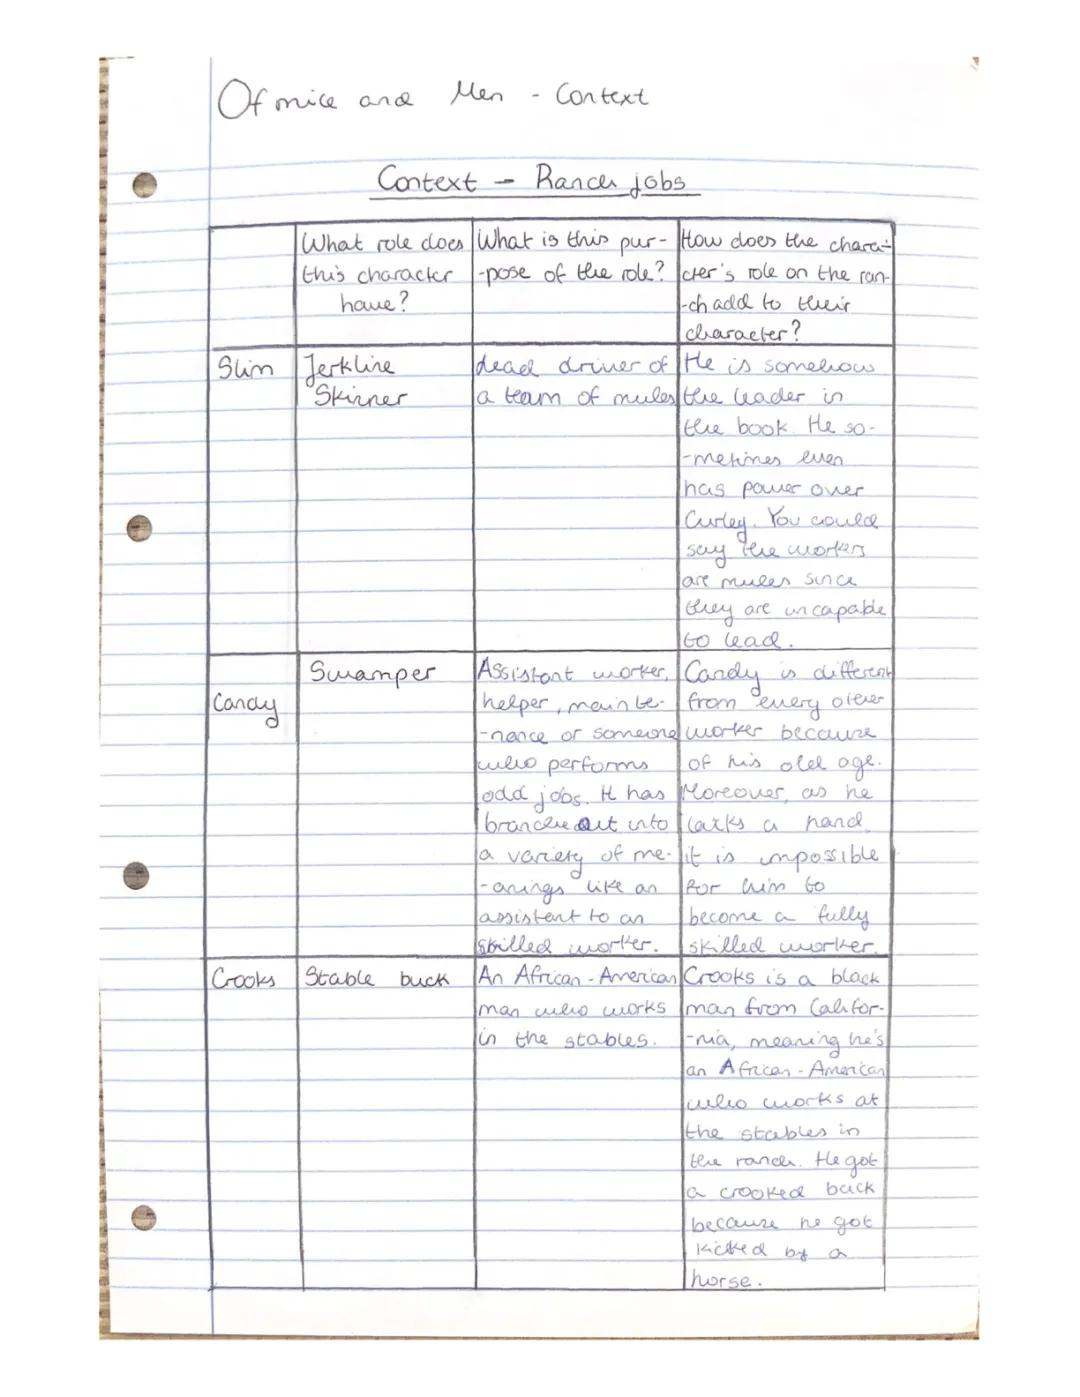 Of mice and Men - Context
Context - Ranch jobs
What role does
this character
have?
What is this pur-
-pose of the role?
How does the chara-
cter's role on the ran-
-ch add to their
character?
Slim
Jerkline
Skinner
lead driver of
a team of mules
He is somehow
the leader in
the book. He so-
-metimes even
has power over
Curley. You could
say the workers
are mules since
they are uncapable
to lead.
Candy
Swamper
Assistant worker,
helper, mainte-
-nance or someone
who performs
odd jobs. It has
branche out into
a variety of me-
-anings like an
assistent to an
skilled worker.
Candy is different
from every other
worker because
of his old age.
Moreover, as he
lacks a hand
it is impossible
for him to
become a fully
skilled worker.
Crooks
Stable buck
An African-American
man who works
in the stables.
Crooks is a black
man from Califor-
-nia, meaning he's
an African-American
who works at
the stables in
the ranch. He got
a crooked back
because he got
kicked by a
horse.